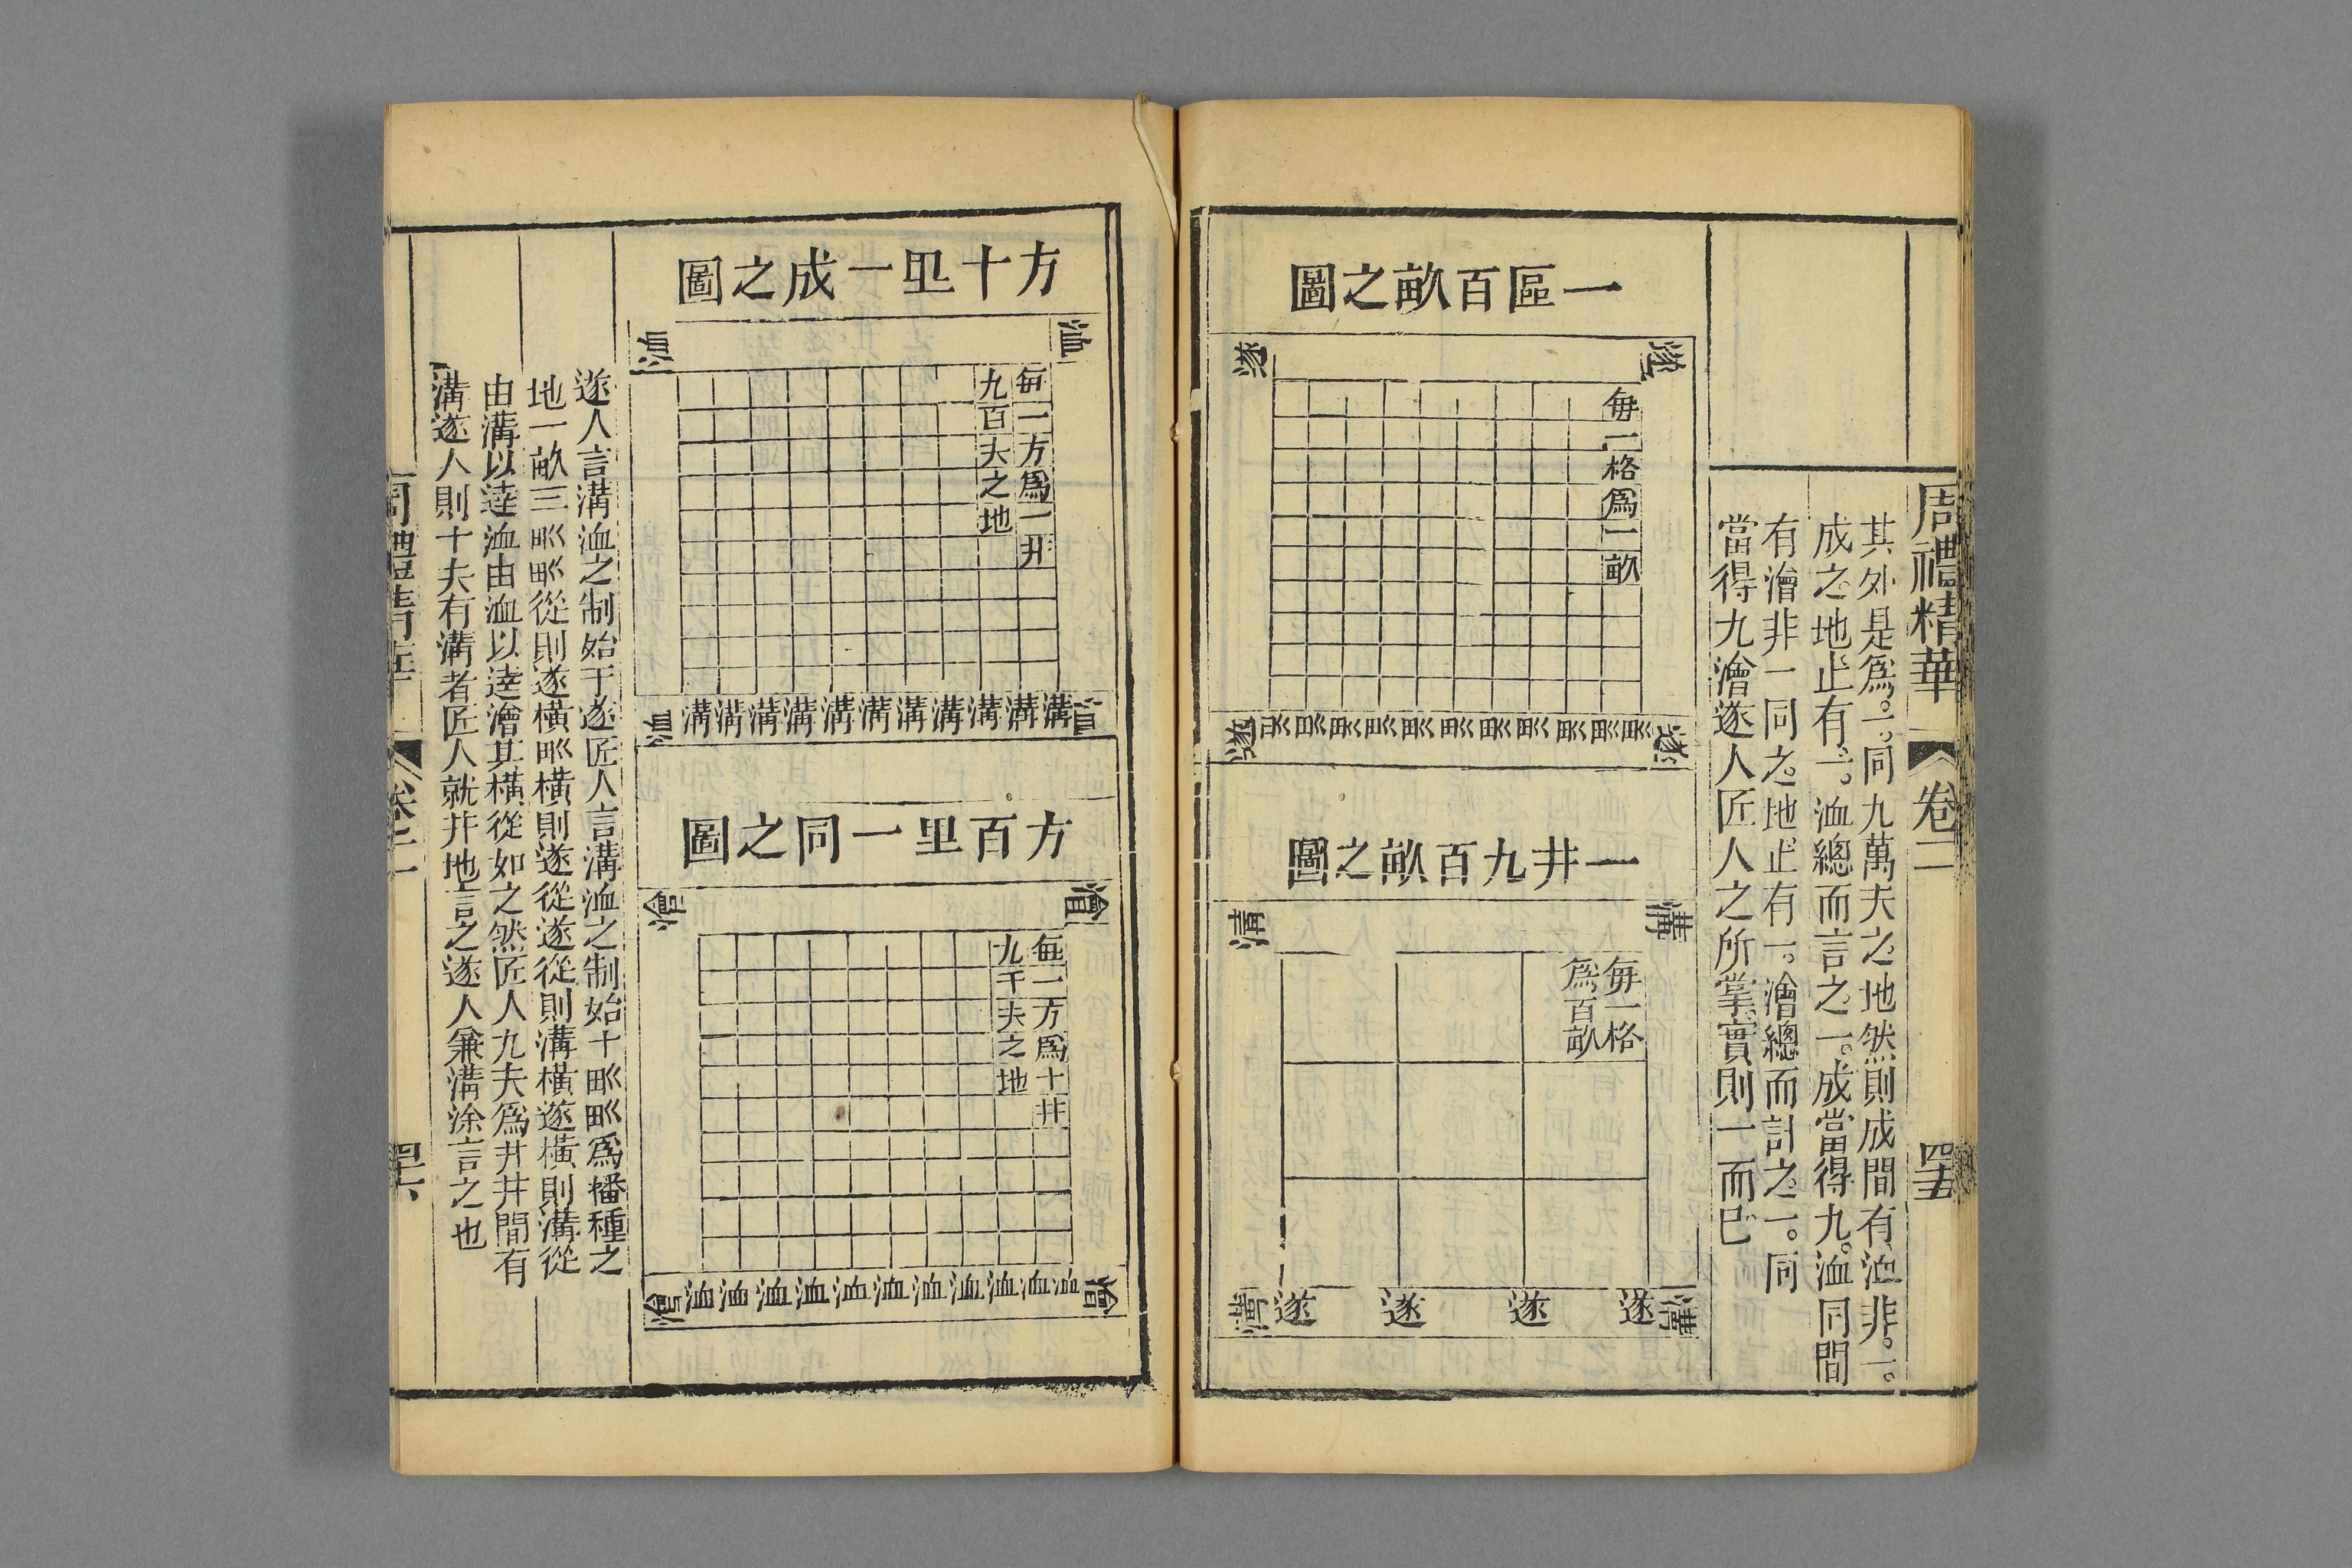 周禮精華
卷二
四十五
其外是爲一同九萬夫之地然則成間有洫非一
成之地止有一洫總而言之一成當得九洫同間
有澮非一同之地止有一澮總而計之一同
當得九澮遂人匠人之所掌實則一而已
一區百畝之圖
遂
遂
每一格爲一畝
遂
遂
一井九百畝之圖
溝
溝
每一格
爲百畝
溝
遂
遂
遂
遂
溝
方十里一成之圖
洫
洫
每一方爲一井
九百夫之地
洫
溝溝溝溝溝溝溝溝溝溝溝
洫
方百里一同之圖
澮
澮
每一方爲十井
九千夫之地
澮
洫洫洫洫洫洫洫洫洫洫洫
澮
遂人言溝洫之制始于遂匠人言溝洫之制始十𤰕𤰕爲播種之
地一畝三𤰕𤰕從則遂橫𤰕橫則遂從遂從則溝橫遂橫則溝從
由溝以達洫由洫以達澮其橫從如之然匠人九夫爲井井間有
溝遂人則十夫有溝者匠人就井地言之遂人兼溝涂言之也
周禮精華
卷二
四十六